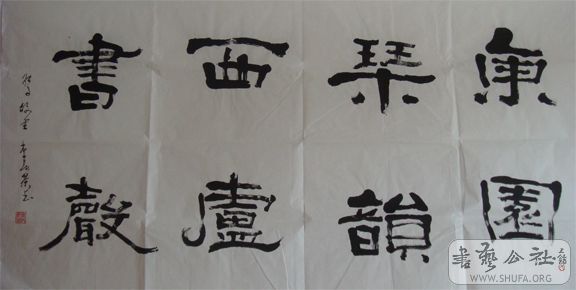 東園
琴韻
西盧
書聲
書藝公社
WWW.SHUFA.ORG